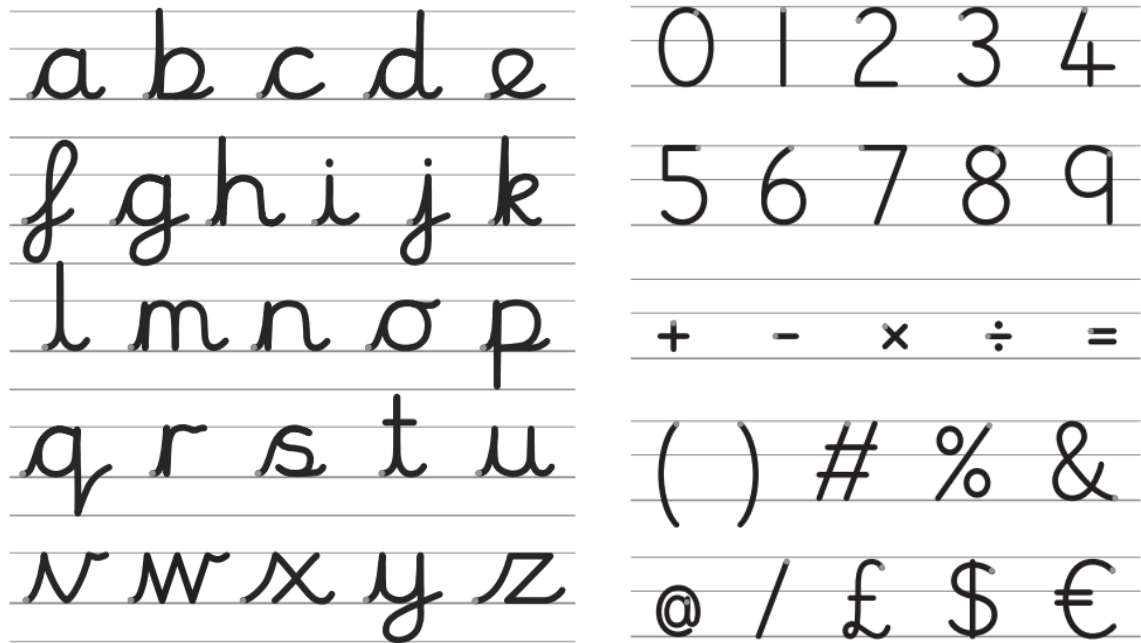 a b c d e
f g h i j k
l m n o p
q r s t u
v w x y z
0 1 2 3 4
5 6 7 8 9
+ - × ÷ =
( ) # % &
@ / £ $ €